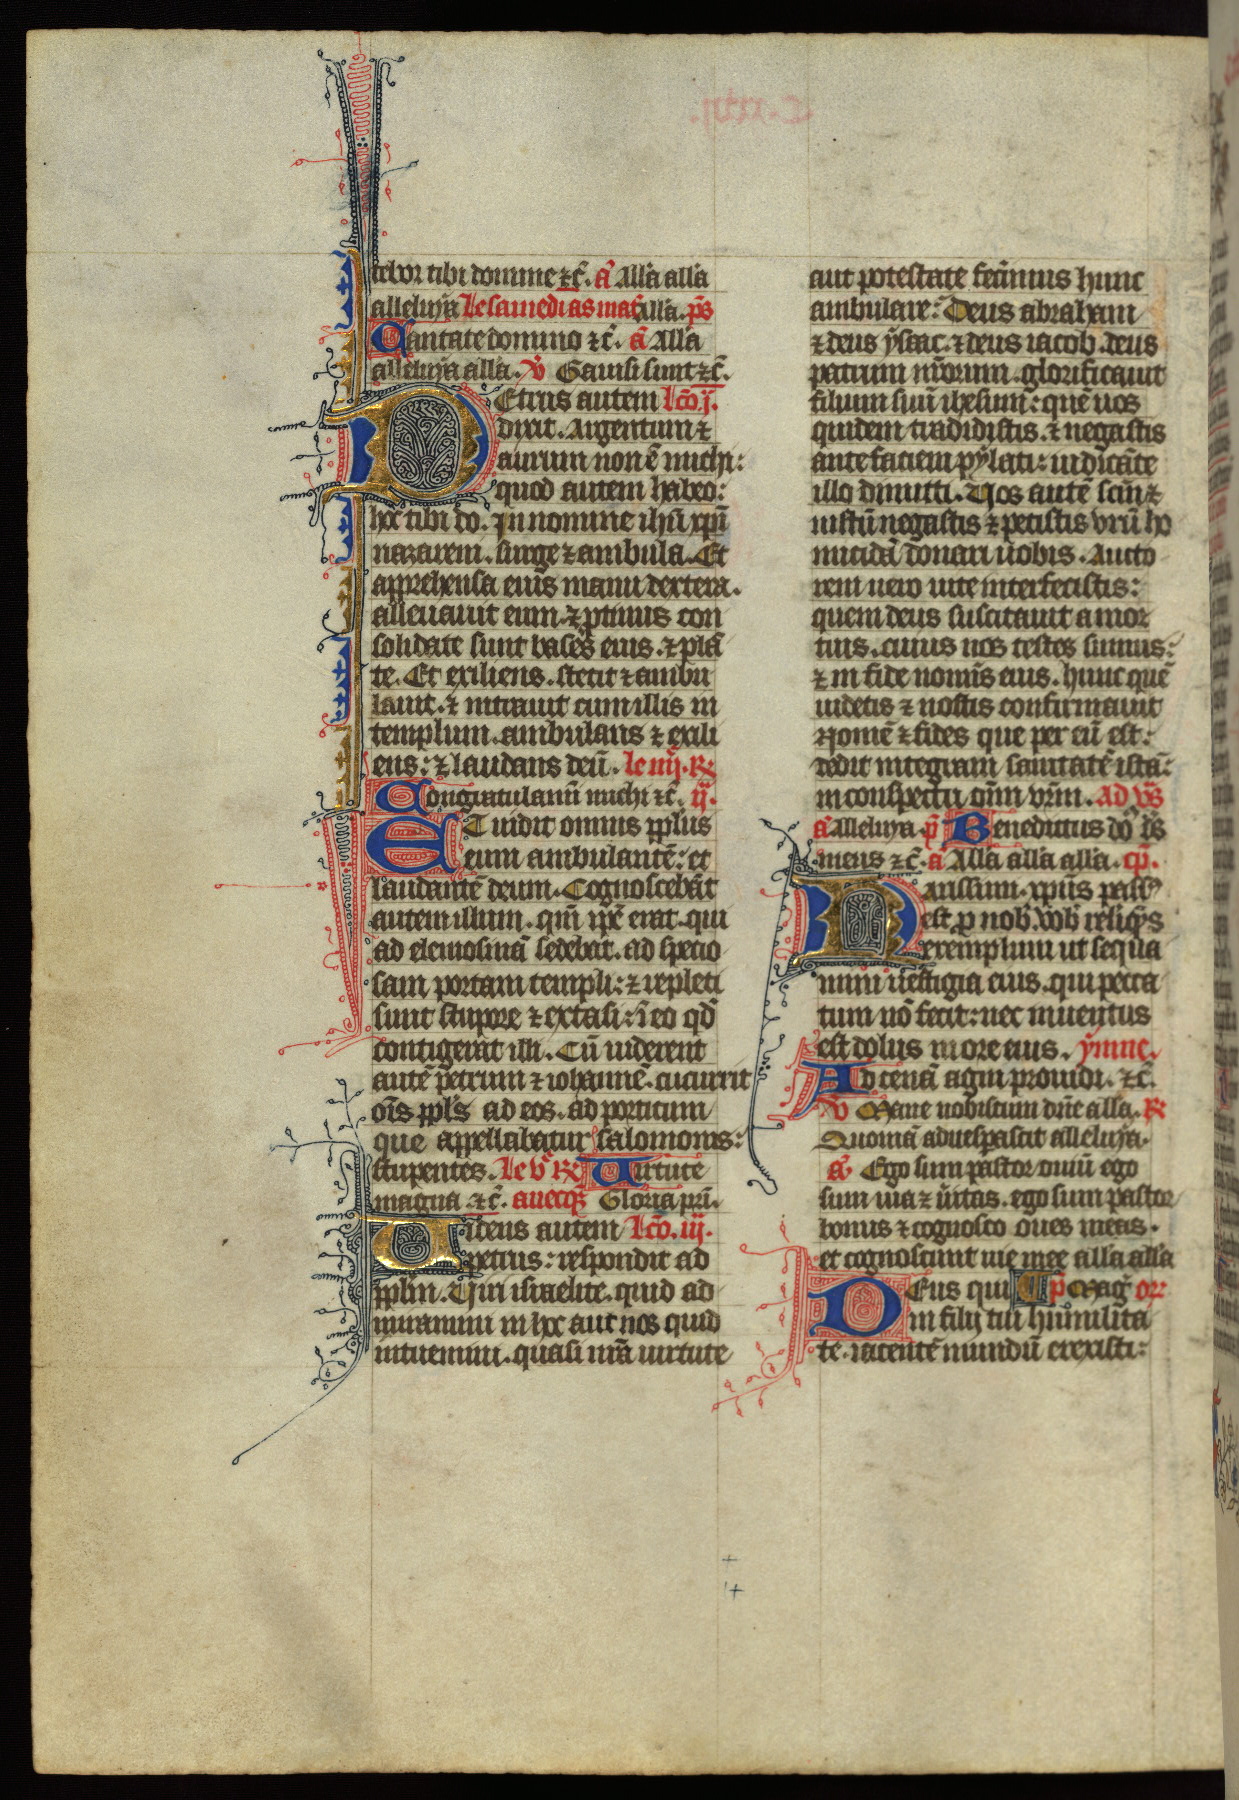 tebor tibi domine ⁊c̃. a͂ Alla alla
alleluya Le samedi as mat̃ alla. p̃s
Cantate domino ⁊c̃. a͂ Alla
alleluya alla. v̾ Gauisi sunt ⁊c̃.
PEtrus autem lc̃o. j.
dixit. Argentum ⁊
aurum non ẽ michi:
quod autem habeo:
hoc tibi do. In nomine ihũ xp̃i
nazareni. surge ⁊ ambula. Et
apprehensa eius manu dextera.
alleuauit eum. ⁊ ꝓtinus con
solidate sunt bases eius. ⁊ plã
te. Et exiliens. stetit ⁊ ambu
lauit. ⁊ intrauit cum illis in
templum. ambulans ⁊ exili
ens: ⁊ laudans deũ. le iiij. R̃
Congratulamĩ michi ⁊c̃. ij.
ET uidit omnis pp̃lus
eum ambulantẽ: et
laudantẽ deum. Cognoscebãt
autem illum. qm̃ ip̃e erat. qui
ad elemosinã sedebat. ad specio
sam portam templi: ⁊ repleti
sunt stupore ⁊ extasi: ĩ eo qd̃
contigerat illi. Cũ uiderent
autẽ petrum ⁊ iohannẽ. cucurrit
om̃s pp̃ls ad eos. ad porticum
que appellabatur salomonis:
stupentes. Le v̾ R̃ Uirtute
magna ⁊c̃. auecq̃s Gloria pr̃i.
Uidens autem Lc̃o. iij.
petrus: respondit ad
pp̃lm̃. Uiri israelite. quid ad
miramini in hoc aut nos quid
intuemini. quasi nr̃a uirtute
aut potestate fecĩmus hunc
ambulare: Deus abraham
⁊ deus ysaac. ⁊ deus iacob. deus
patrum nr̃orum. glorificauit
filium suũ ihesum: quẽ uos
quidem tradidistis. ⁊ negastis
ante faciem pylati: iudicãte
illo dimitti. Uos autẽ sc̃m ⁊
iustũ negastis ⁊ petistis virũ ho
micidã donari uobis. Aucto
rem uero uite interfecistis:
quem deus suscitauit a mor
tuis. cuius nos testes sumus:
⁊ in fide nominis eius. hunc quẽ
uidetis ⁊ nostis confirmauit
nomẽ ⁊ fides que per eũ est:
dedit integram sanitatẽ istã:
in conspectu om̃i vr̃m. Ad v̾s
a͂ Alleluya. p̃ Benedictus dõ d̃s
meus ⁊c̃. a͂ Alla alla alla. cp̃.
Karissimi. xp̃us pass9
est ꝓ nob̃. vob̃ reliq̃ns
exemplum ut sequa
mini uestigia eius. qui pecca
tum nõ fecit: nec inuentus
est dolus in ore eius. ymne.
Ad cenã agni prouidi. ⁊c̃.
v̾ Mane nobiscum dñe alla. R̃
Quoniã aduesꝑascit alleluya.
a͂ Ego sum pastor ouiũ ego
sum uia ⁊ ũitas. ego sum pastor
bonus ⁊ cognosco oues meas.
et cognoscunt me mee alla alla
DEus qui ¶ p̃ Mag̃. orr
in filij tui humilita
te. iacentẽ mundũ erexisti: